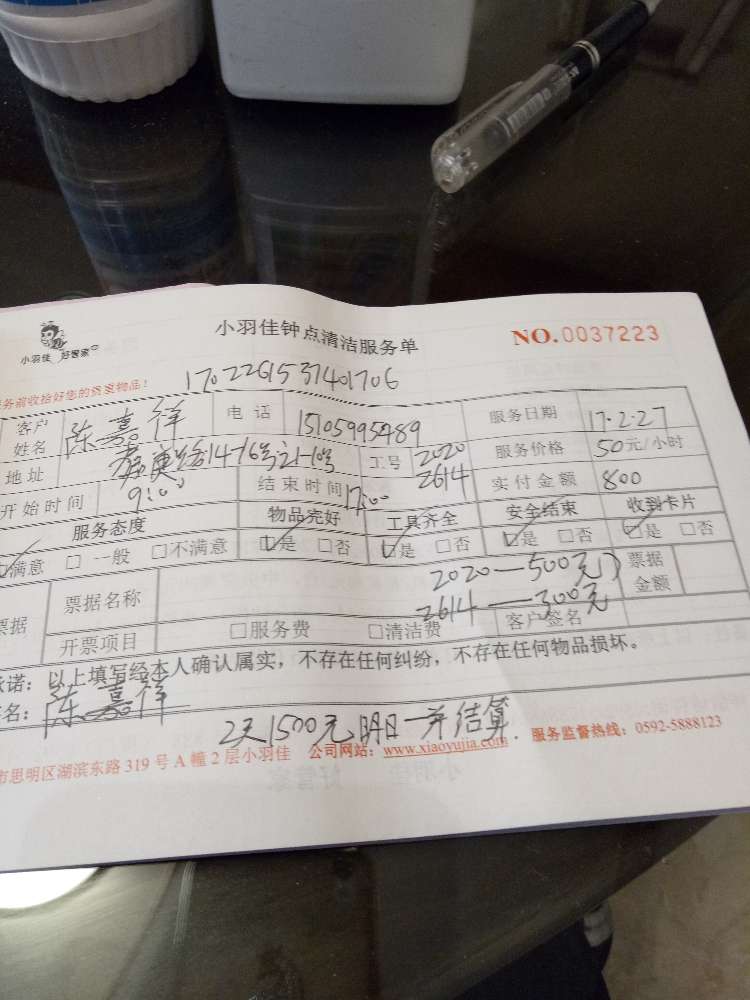 小羽佳 好管家
小羽佳钟点清洁服务单
NO.0037223
务前收拾好您的贵重物品!
1702261537401706
客户姓名 陈嘉祥 电话 15105995989 服务日期 17.2.27
地址 工号 2020 2614 服务价格 50元/小时
开始时间 9:00 结束时间 17:00 实付金额 800
服务态度 物品完好 工具齐全 安全结束 收到卡片
满意 □ 一般 □不满意 □是 □否 □是 □否 □是 □否 □是 □否
票据 票据名称 2020—500元 票据金额
2614—300元
开票项目 □服务费 □清洁费 客户签名
承诺:以上填写经本人确认属实,不存在任何纠纷,不存在任何物品损坏。
名:陈嘉祥
2天1500元明日一并结算
市思明区湖滨东路319号A幢2层小羽佳 公司网站:www.xiaoyujia.com . 服务监督热线:0592-5888123